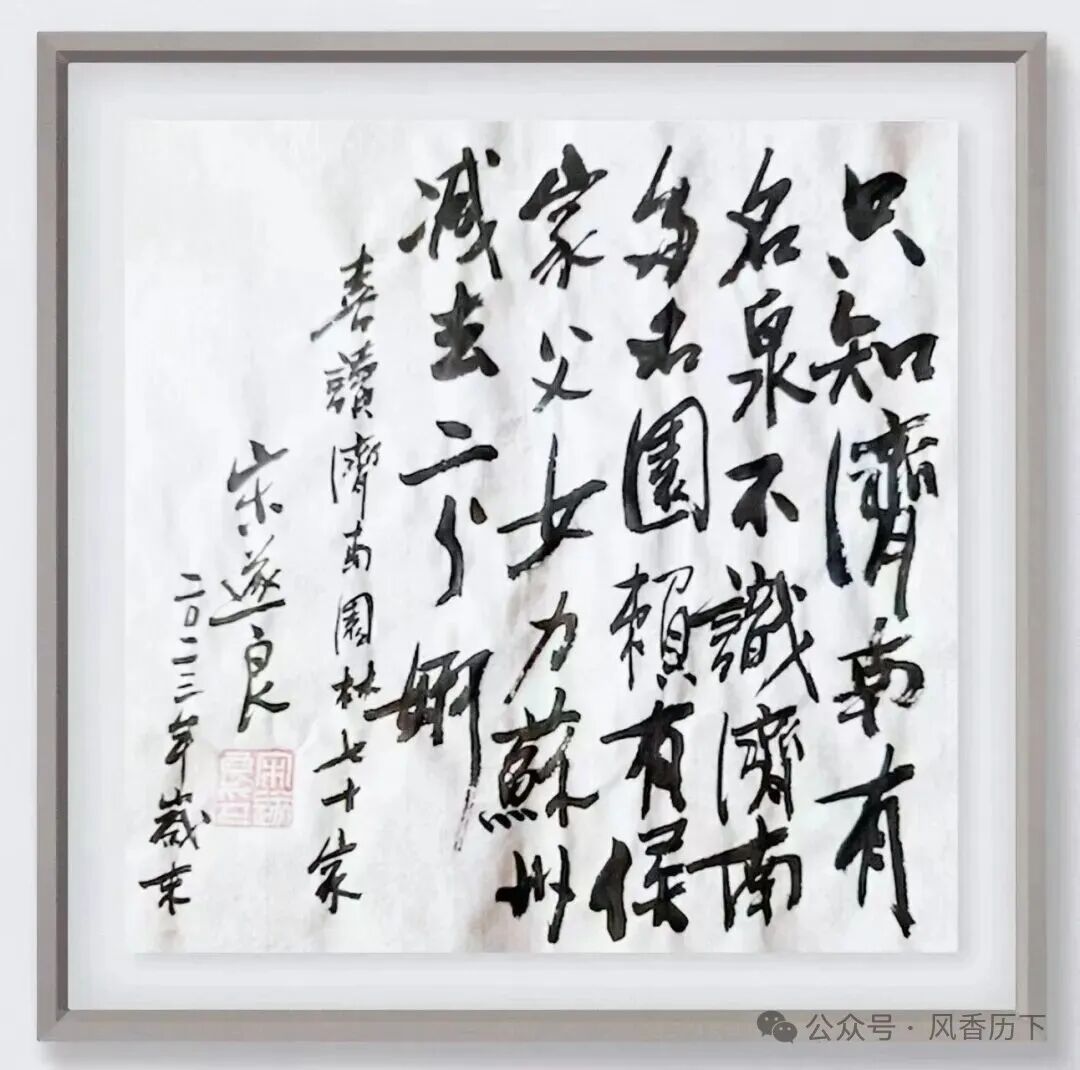 只知濟南有
名泉不識濟南
多名園賴有侯
家父女力蘇州
減去二分妍
喜讀濟南園林七十家
宋遂良
二〇二三年歲末
宋遂良印
公众号 · 风香历下